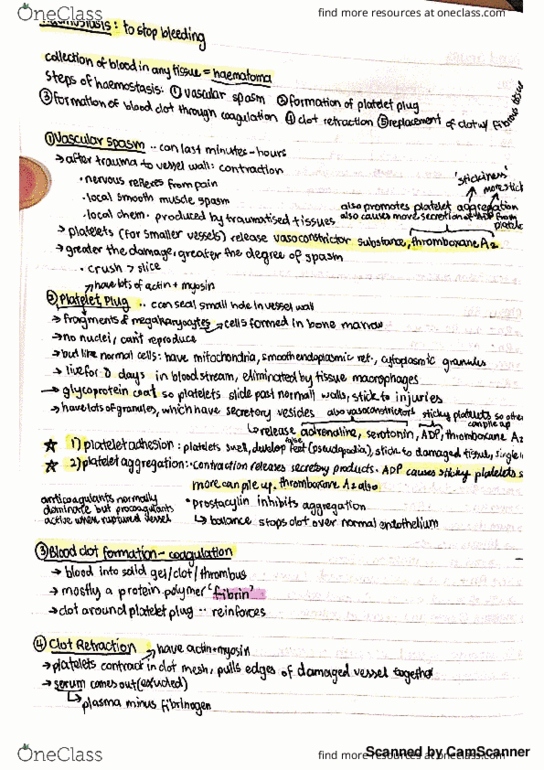 OneClass
find more resources at oneclass.com
: to stop bleeding
collection of blood in any tissue = haematoma
steps of haemostasis: ① vascular spasm ② formation of platelet plug
③ formation of blood clot through coagulation ④ clot retraction ⑤ replacement of clot w/ fibrous tissue
① Vascular spasm .. can last minutes - hours
→ after trauma to vessel wall: contraction
• nervous reflexes from pain
• local smooth muscle spasm
• local chem. produced by traumatised tissues
'stickiness'
more stick
also promotes platelet aggregation
also causes more secretion of ADP from platele
→ platelets (for smaller vessels) release vasoconstrictor substance, thromboxane A2
→ greater the damage, greater the degree of spasm
• crush > slice
have lots of actin + myosin
② Platelet Plug .. can seal small hole in vessel wall
→ fragments of megakaryoytes → cells formed in bone marrow
→ no nuclei, can't reproduce
→ but like normal cells: have mitochondria, smooth endoplasmic ret., cytoplasmic granules
→ live for days in blood stream, eliminated by tissue macrophages
→ glycoprotein coat so platelets slide past normal walls, stick to injuries
→ have lots of granules, which have secretory vesicles
also vasoconstrictors
sticky platelets so other can pile up
↳ release adrenaline, serotonin, ADP, thromboxane A2
☆ 1) platelet adhesion: platelets swell, develop false feet (pseudopodia), stick to damaged tissue, single l
☆ 2) platelet aggregation: • contraction releases secretory products. ADP causes sticky platelets s
more can pile up. thromboxane A2 also
anticoagulants normally
dominate but procoagulants
active when ruptured vessel
• prostacylin inhibits aggregation
↳ balance stops clot over normal endothelium
③ Blood clot formation - coagulation
→ blood into solid gel/clot/thrombus
→ mostly a protein polymer 'fibrin'
→ clot around platelet plug .. reinforces
④ Clot Retraction
have actin + myosin
→ platelets contract in clot mesh, pulls edges of damaged vessel together
→ serum comes out (extruded)
↳ plasma minus fibrinogen
OneClass
find more resources at oneclass.com
Scanned by CamScanner